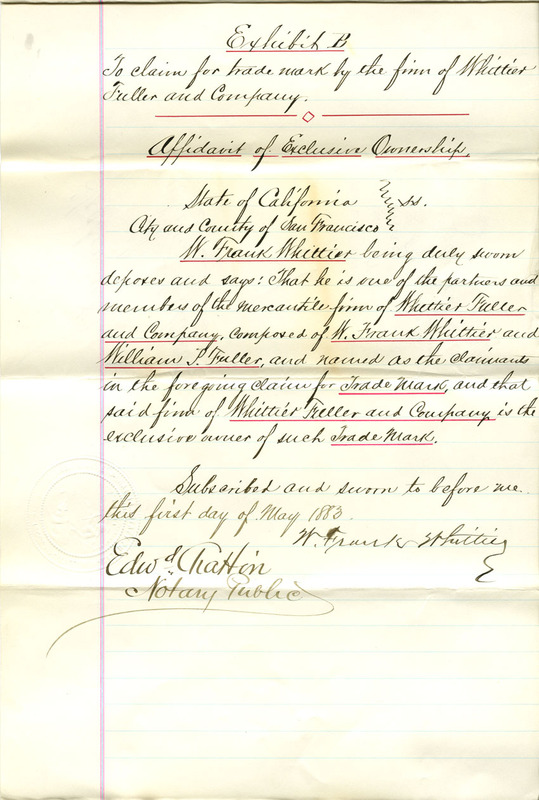 Exhibit B
To claim for trade mark by the firm of Whittier
Fuller and Company.
Affidavit of Exclusive Ownership.
State of California } ss.
City and County of San Francisco
W. Frank Whittier being duly sworn
deposes and says: That he is one of the partners and
members of the mercantile firm of Whittier Fuller
and Company, composed of W. Frank Whittier and
William P. Fuller, and named as the claimants
in the foregoing claim for Trade Mark, and that
said firm of Whittier Fuller and Company is the
exclusive owner of such Trade Mark.
Subscribed and sworn to before me
this first day of May 1883.
W. Frank Whittier
Edwd Chattin
Notary Public